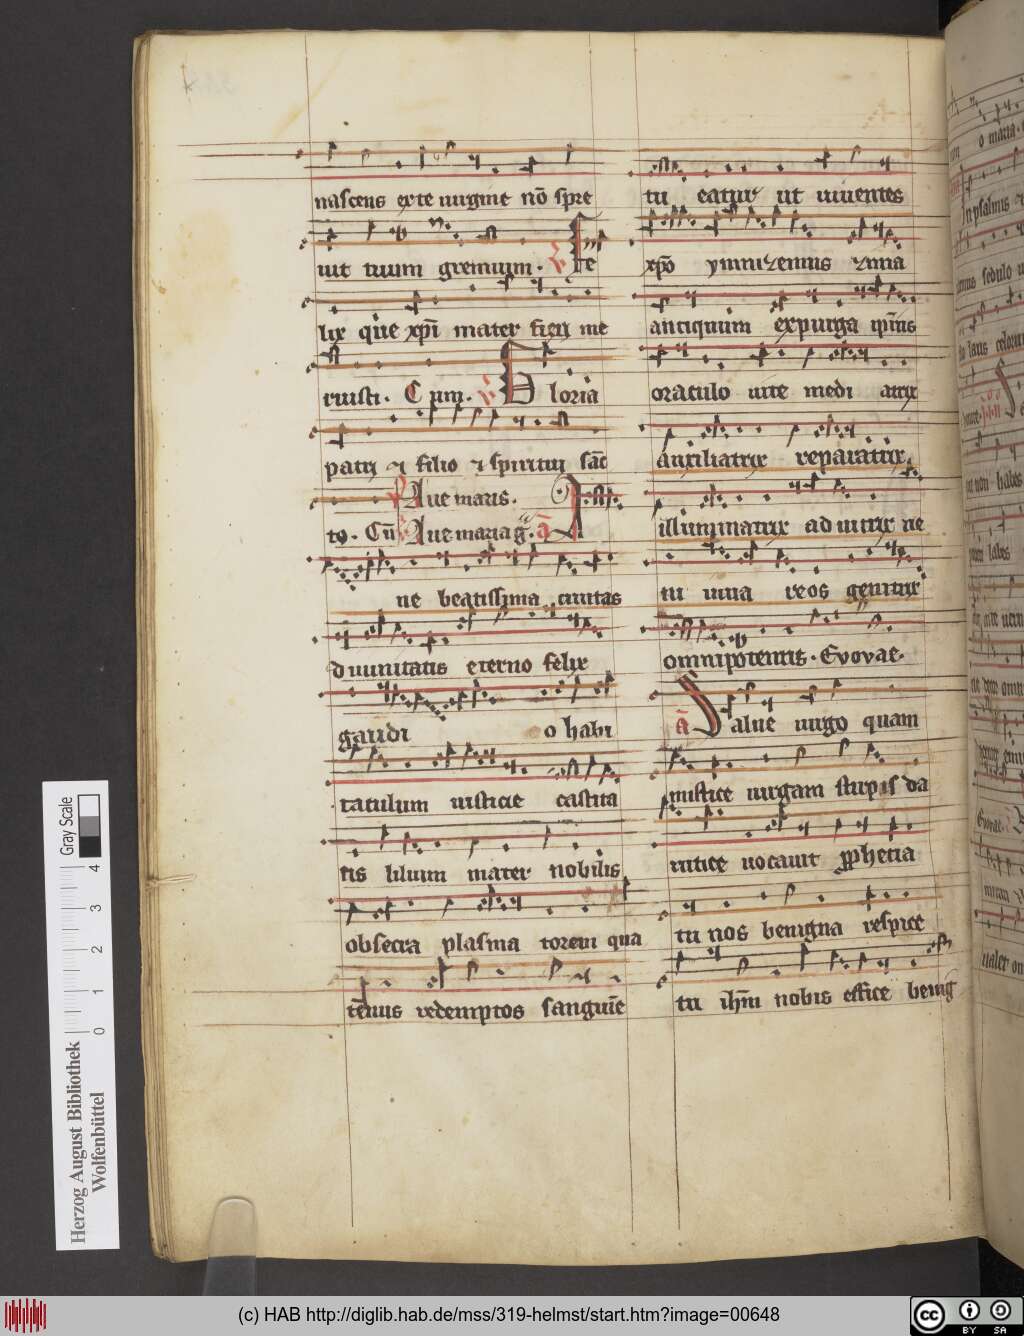 nascens exte uirgine nō spre
uit tuum gremium. V Fe
lix que xpī mater fieri me
ruisti. Cum. V Gloria
patri et filio et spiritui sāc
Aue maris.
to. Cū Aue maria g. ā A
ue beatissima ciuitas
diuinitatis eterno felix
gaudi o habi
taculum iusticie castita
tis lilium mater nobilis
obsecra plasma torem qua
tenus redemptos sanguīe
tu eatur ut uiuentes
xpō ymnizemus
antiquum expurga
oraculo uite medi atrix
Auxiliatrix reparatrix
illuminatrix ad uitrix ne
tu uiua reos genitrix
omnipotentis. Evovae.
ā Salue uirgo quam
mistice uirgam stirpis da
uitice uocauit pphetia
tu nos benigna respice
tu ihm nobis effice benig
Herzog August Bibliothek
Wolfenbüttel
0 1 2 3 4
Gray Scale
(c) HAB http://diglib.hab.de/mss/319-helmst/start.htm?image=00648
cc BY SA